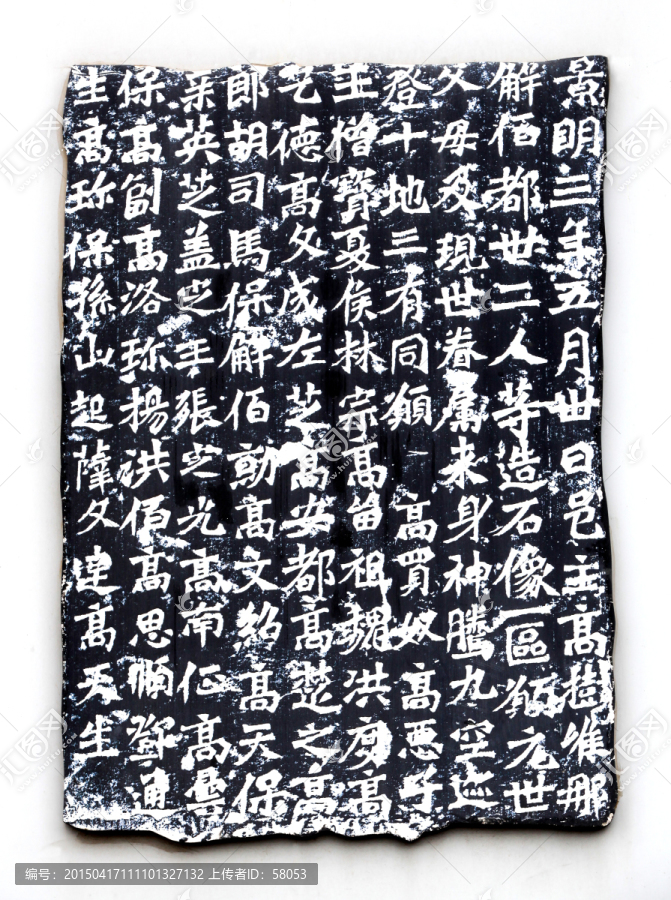 景明三年五月卅日邑主高樹維那
解佰都卅二人等造石像一區願元世
父母及現世眷屬来身神騰九空迹
登十地三有同願 高買奴高惡子
王僧寶夏侯林宗高留祖魏洪度高
乞德高文成左芝高安都高楚之高
郎胡司馬保解佰勳高文紹高天保
英芝盖之王張之光高南征高曇
保高創高洛珎楊洪佰高思順鄧通
生高珎保孫山起薩文達高天生
编号：20150417111101327132 上传者ID：58053